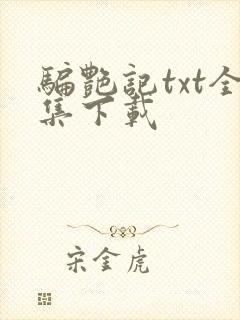 骗艷記txt全
集下載
宋金虎